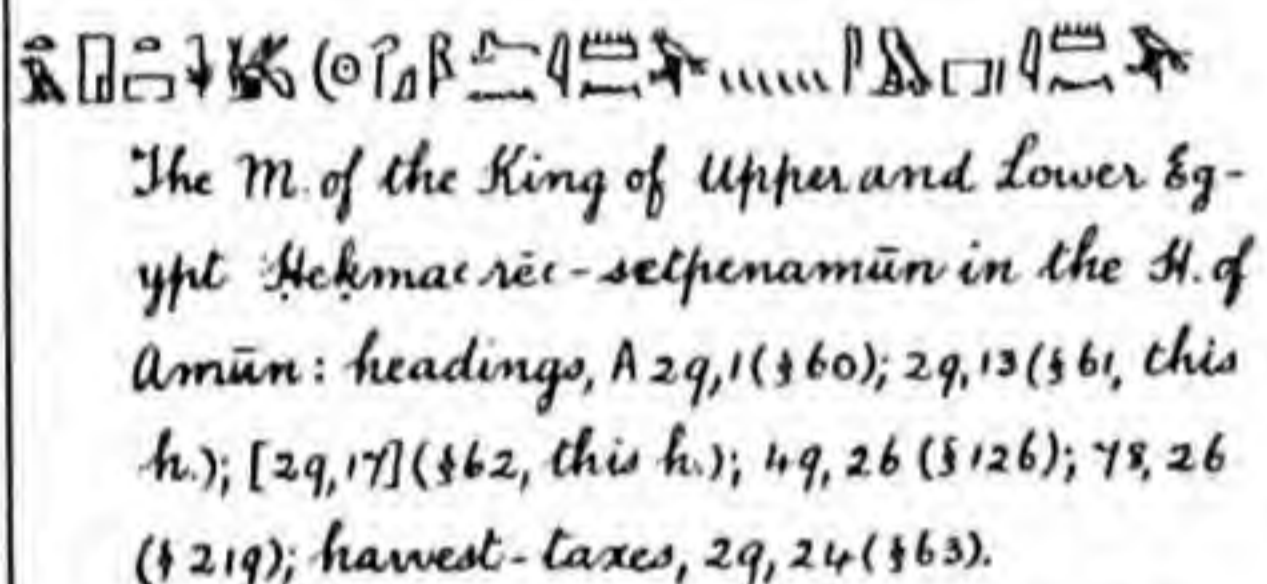 The M. of the King of Upper and Lower Eg-
ypt Ḥeḳmaꜥrēꜥ-setpenamūn in the H. of
Amūn: headings, A 29,1 (§60); 29,13 (§61, this
h.); [29,17] (§62, this h.); 49,26 (§126); 78,26
(§219); harvest-taxes, 29,24 (§63).